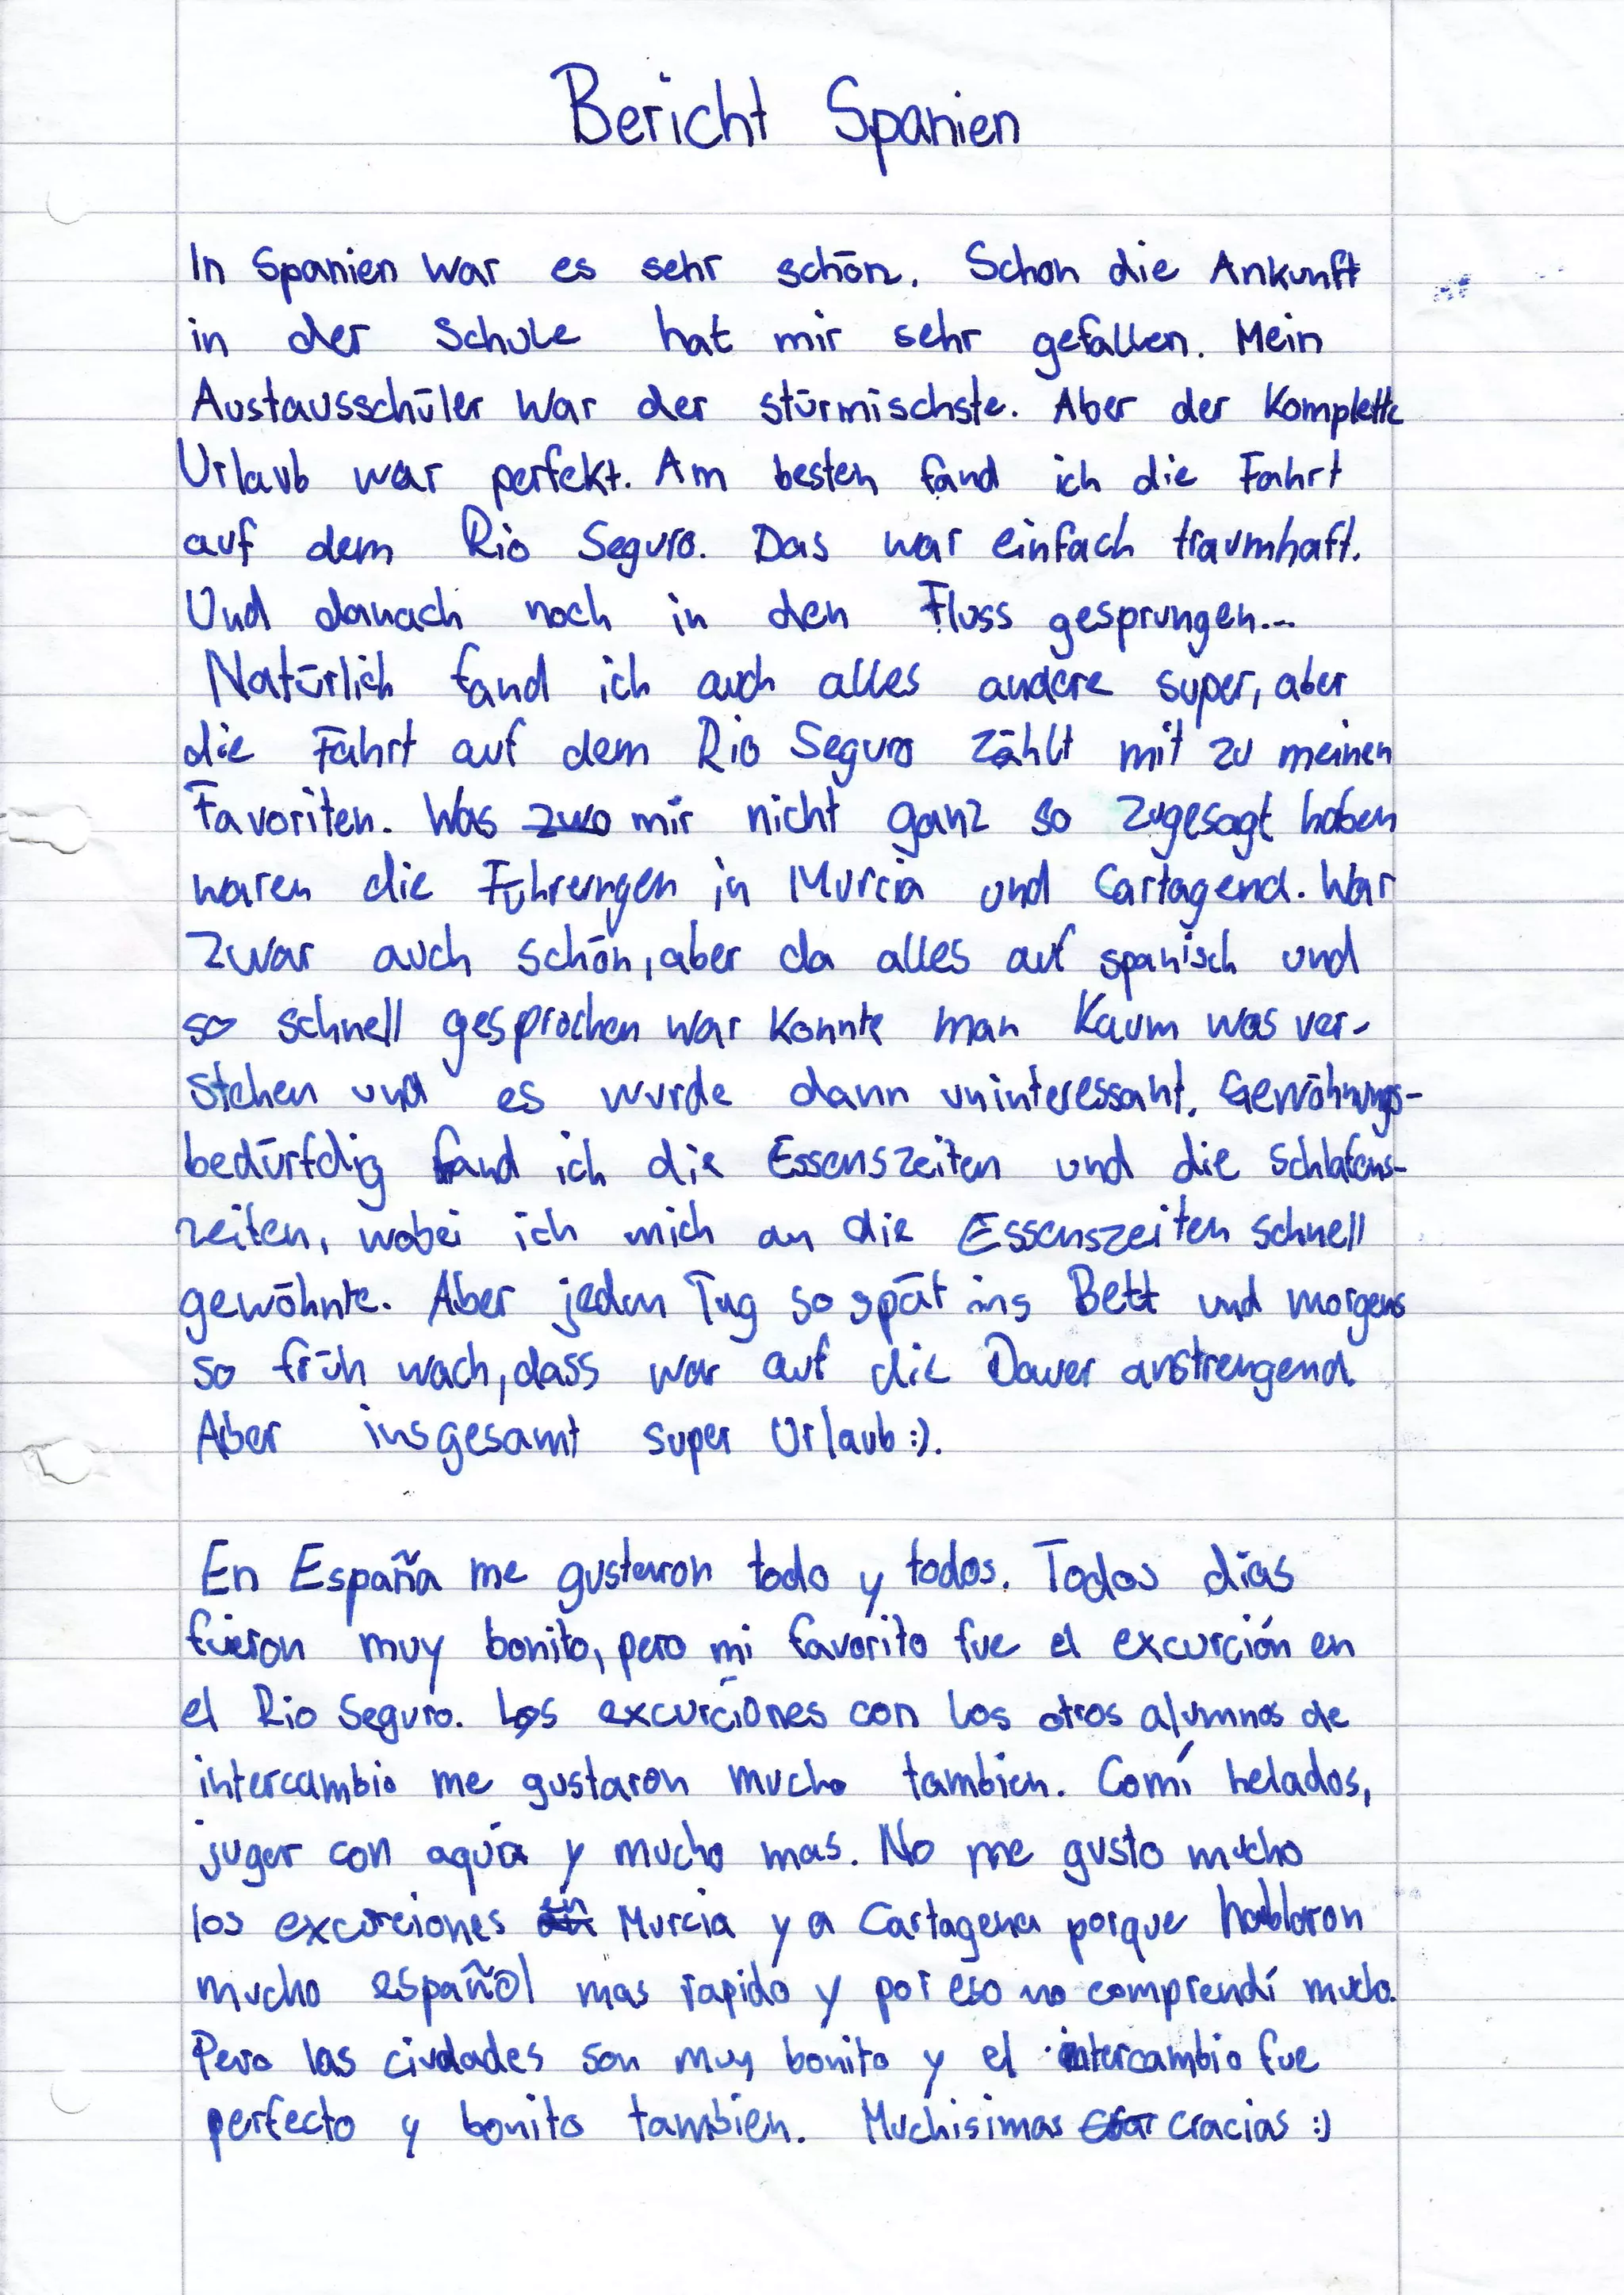 Bericht Spanien
In Spanien war es sehr schön. Schon die Ankunft
in der Schule hat mir sehr gefallen. Mein
Austausschüler war der stürmischste. Aber der Komplette
Urlaub war perfekt. Am besten fand ich die Fahrt
auf dem Rio Seguro. Das war einfach traumhaft.
Und danach noch in den Fluss gesprungen...
Natürlich fand ich auch alles andere super, aber
die Fahrt auf dem Rio Seguro zählt mit zu meinen
Favoriten. Was mir nicht ganz so zugesagt haben
waren die Führerungen in Murcia und Cartagena. War
zwar auch schön, aber da alles auf spanisch und
so schnell gesprochen war konnte man kaum was ver-
stehen und es wurde dann uninteressant. Gewöhnungs-
bedürfdig fand ich die Essenszeiten und die Schlafens-
zeiten, wobei ich mich an die Essenszeiten schnell
gewöhnte. Aber jeden Tag so spät ins Bett und morgens
so früh wach, dass war auf die Dauer anstrengend.
Aber insgesamt super Urlaub :).
En España me gustaron todo y todos. Todos días
fueron muy bonito, pero mi favorito fue el excurción en
el Rio Seguro. Los excurciónes con los otros alumnos de
intercambio me gustaron mucho tambien. Comí helados,
jugar con aquía y mucho mas. No me gusto mucho
los excurciones en Murcia y a Cartagena porque hablaron
mucho español mas rapido y por eso no comprendí mucho.
Pero las ciudades son muy bonito y el intercambio fue
perfecto y bonito tambien. Muchisimas cracias :)